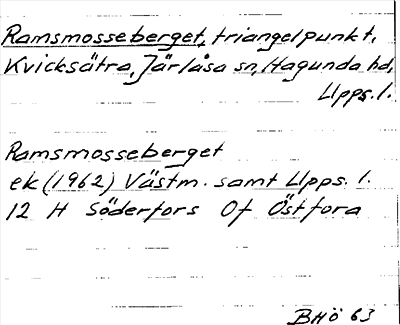 Ramsmosseberget, triangelpunkt,
Kvicksätra, Järlåsa sn, Hagunda hd,
Upps. l.
Ramsmosseberget
ek (1962) Västm. samt Upps. l.
12 H Söderfors 0f Östfora
BHÖ 63